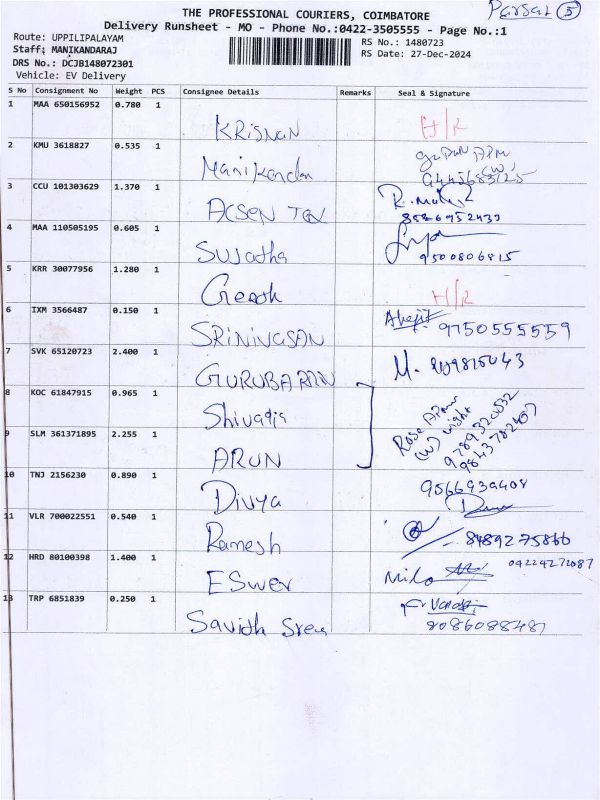 THE PROFESSIONAL COURIERS, COIMBATORE
Parsal 5
Delivery Runsheet - MO - Phone No.:0422-3505555 - Page No.:1
Route: UPPILIPALAYAM
RS No.: 1480723
Staff: MANIKANDARAJ
RS Date: 27-Dec-2024
DRS No.: DCJB148072301
Vehicle: EV Delivery
S No Consignment No Weight PCS Consignee Details Remarks Seal & Signature
1 MAA 650156952 0.780 1
KRISNAN H/R
2 KMU 3618827 0.535 1
Manikandan
3 CCU 101303629 1.370 1
R.
8586952433
4 MAA 110505195 0.605 1
Sujatha 9500806815
5 KRR 30077956 1.280 1
H/R
6 IXM 3566487 0.150 1
SRINIVASAN 9750555559
7 SVK 65120723 2.400 1
GURUBARAN M.
8 KOC 61847915 0.965 1
9789320532
9843782407
9 SLM 361371895 2.255 1
ARUN
10 TNJ 2156230 0.890 1
Divya 9566939408
11 VLR 700022551 0.540 1
Ramesh 8489275860
12 HRD 80100398 1.400 1
ESwer 04224272087
13 TRP 6851839 0.250 1
Savith Sree 8086088481